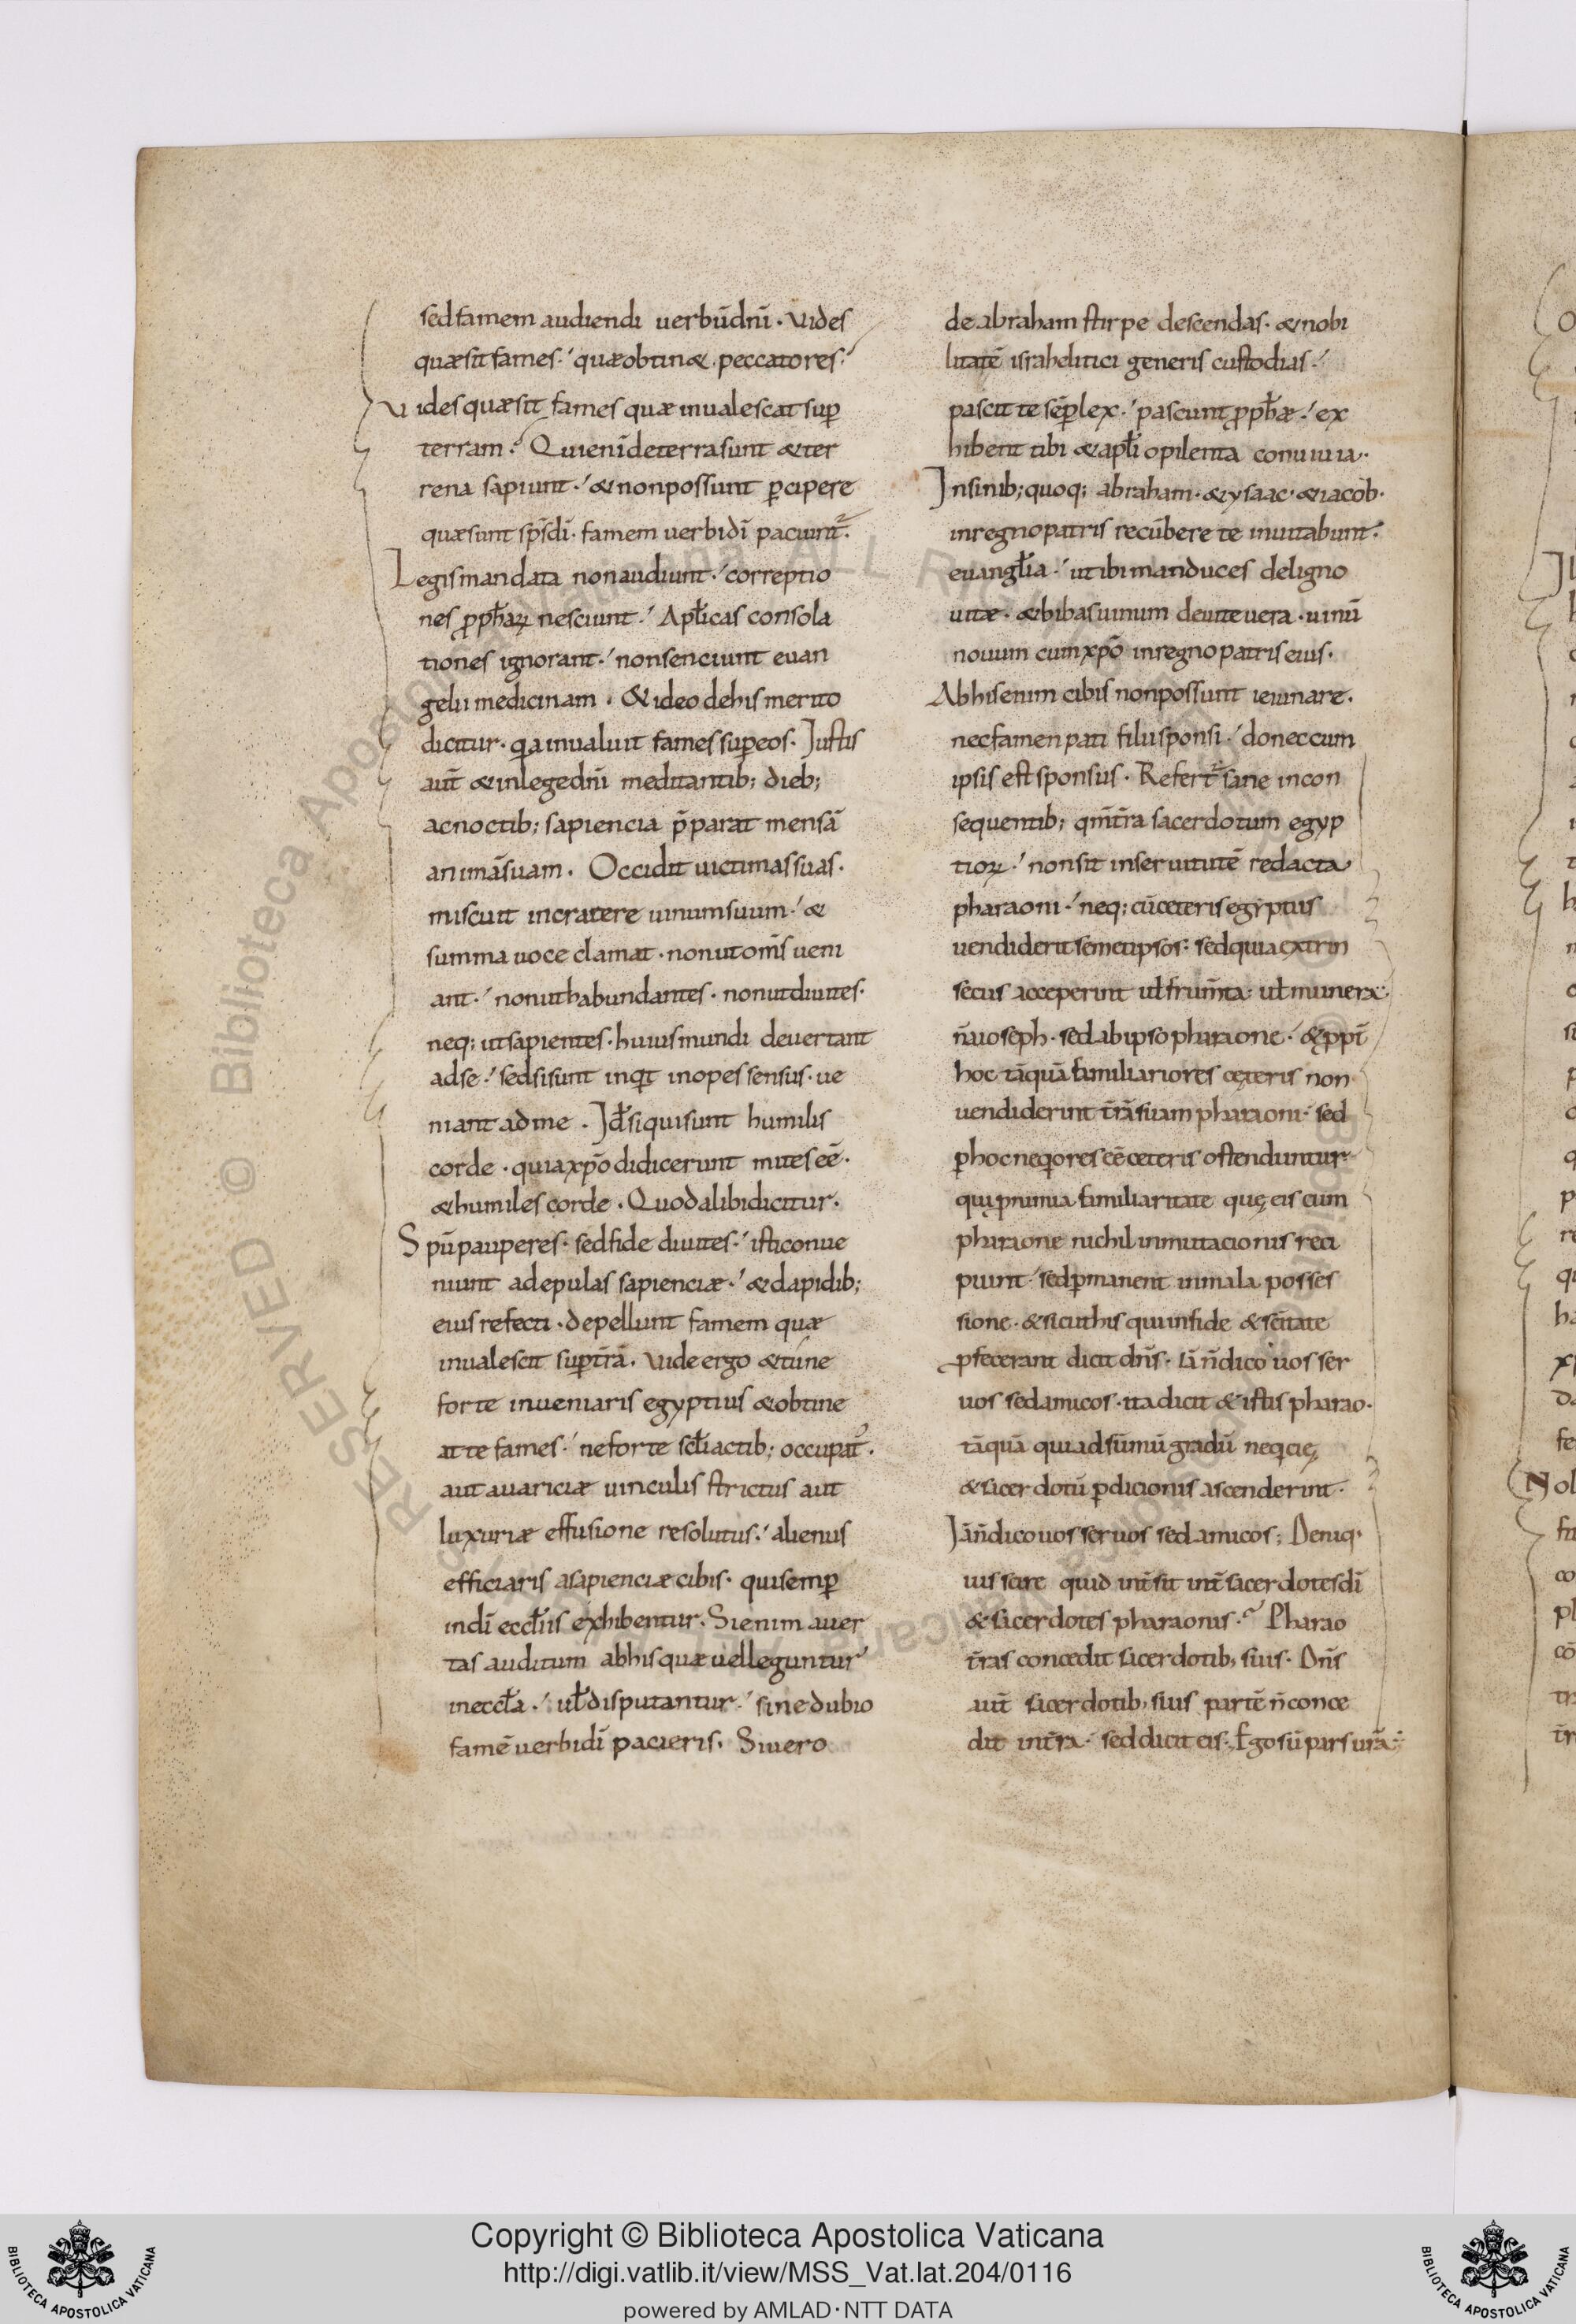 sed famem audiendi uerbū dn̄i · Vides
quæ sit fames ·' quæ obtin& peccatores ·'
Vides quæ sit fames quæ inualescat sup̱
terram ·' Qui eni de terra sunt & ter
rena sapiunt ·' & non possunt p̱cipere
quæ sunt sp̄s dī · famem uerbi dī paciunt̄ ·
Legis mandata non audiunt ·' correptio
nes ꝓph̄aꝝ nesciunt ·' Apl̄icas consola
tiones ignorant ·' non senciunt euan
gelii medicinam · & ideo de his merito
dicitur · qa inualuit fames sup̱ eos · Justis
aut̄ & in lege dn̄i meditantib; dieb;
ac noctib; sapiencia p̄parat mensā
animā suam · Occidit uictimas suas ·
miscuit in cratere uinum suum ·' &
summa uoce clamat · non ut om̄s ueni
ant ·' non ut habundantes · non ut diuites ·
neq; ut sapientes · huius mundi deuertant
ad se ·' sed si sunt inqt inopes sensus · ue
niant ad me · Id̄ si qui sunt humilis
corde · quia xp̄o didicerunt mites eē ·
& humiles corde · Quod alibi dicitur ·
Spū pauperes · sed fide diuites ·' isti conue
niunt ad epulas sapienciæ ·' & dapidib;
eius refecti · depellunt famem quæ
inualescit sup̱ t̄rā · Vide ergo & tu ne
forte inueniaris egyptius & obtine
at te fames ·' ne forte scl̄i actib; occupat᷒ ·
aut auariciæ uinculis strictus aut
luxuriæ effusione resolutus ·' alienus
efficiaris a sapienciæ cibis · qui semp̱
in dī eccl̄iis exhibentur · Si enim auer
tas auditum ab his quæ uel leguntur
in eccl̄a ·' ul̄ disputantur ·' sine dubio
famē uerbi dī pacieris · Si uero
de abraham stirpe descendas · & nobi
litatē israhelitici generis custodias ·'
pascit te sēp̱ lex ·' pascunt ꝓph̄æ ·' ex
hibent tibi & apl̄i opilenta conuiuia ··
In sinib; quoq; abraham · & ysaac · & iacob ·
in regno patris recūbere te inuitabunt ·
euangl̄ia ·' ut ibi manduces de ligno
uitæ · & bibas uinum de uite uera · uinū
nouum cum xp̄o in regno patris eius ·
Ab his enim cibis non possunt ieiunare ·
nec famen pati filii sponsi ·' donec cum
ipsis est sponsus · Refert᷒ sane in con
sequentib; qm̄ t̄ra sacerdotum egyp
tioꝝ ·' non sit in seruitutē redacta
pharaoni ·' neq; cū ceteris egyptiis
uendiderit semetipsos: sed quia extrin
secus acceperint ul̄ frum̄ta: ul̄ munera:
n̄ a ioseph · sed ab ipso pharaone ·' & ꝓpt̄
hoc tāquā familiariores cęteris non
uendiderint t̄rā suam pharaoni · sed
p̱ hoc neqores eē ceteris ostenduntur
qui p̱ nimia familiaritate quę eis cum
pharaone nichil inmutacionis reci
piunt · sed p̱manent in mala posses
sione · & sicut his qui in fide & sc̄itate
ꝓfecerant dicit dn̄s · iā n̄ dico uos ser
uos sed amicos · ita dicit & istis pharao ·
tāquā qui ad sūmū gradū neqcię
& sacerdotū p̱dicionis ascenderint ·
Jā n̄ dico uos seruos sed amicos; Deniq·
uis scire quid int̄ sit int̄ sacerdotes dī
& sacerdotes pharaonis · Pharao
t̄ras concedit sacerdotib; suis · Dn̄s
aut̄ sacerdotib; suis partē n̄ conce
dit in t̄ra ·' sed dicit eis · Ego sū pars ur̄a ·:
Copyright © Biblioteca Apostolica Vaticana
http://digi.vatlib.it/view/MSS_Vat.lat.204/0116
powered by AMLAD·NTT DATA
BIBLIOTECA APOSTOLICA VATICANA
BIBLIOTECA APOSTOLICA VATICANA